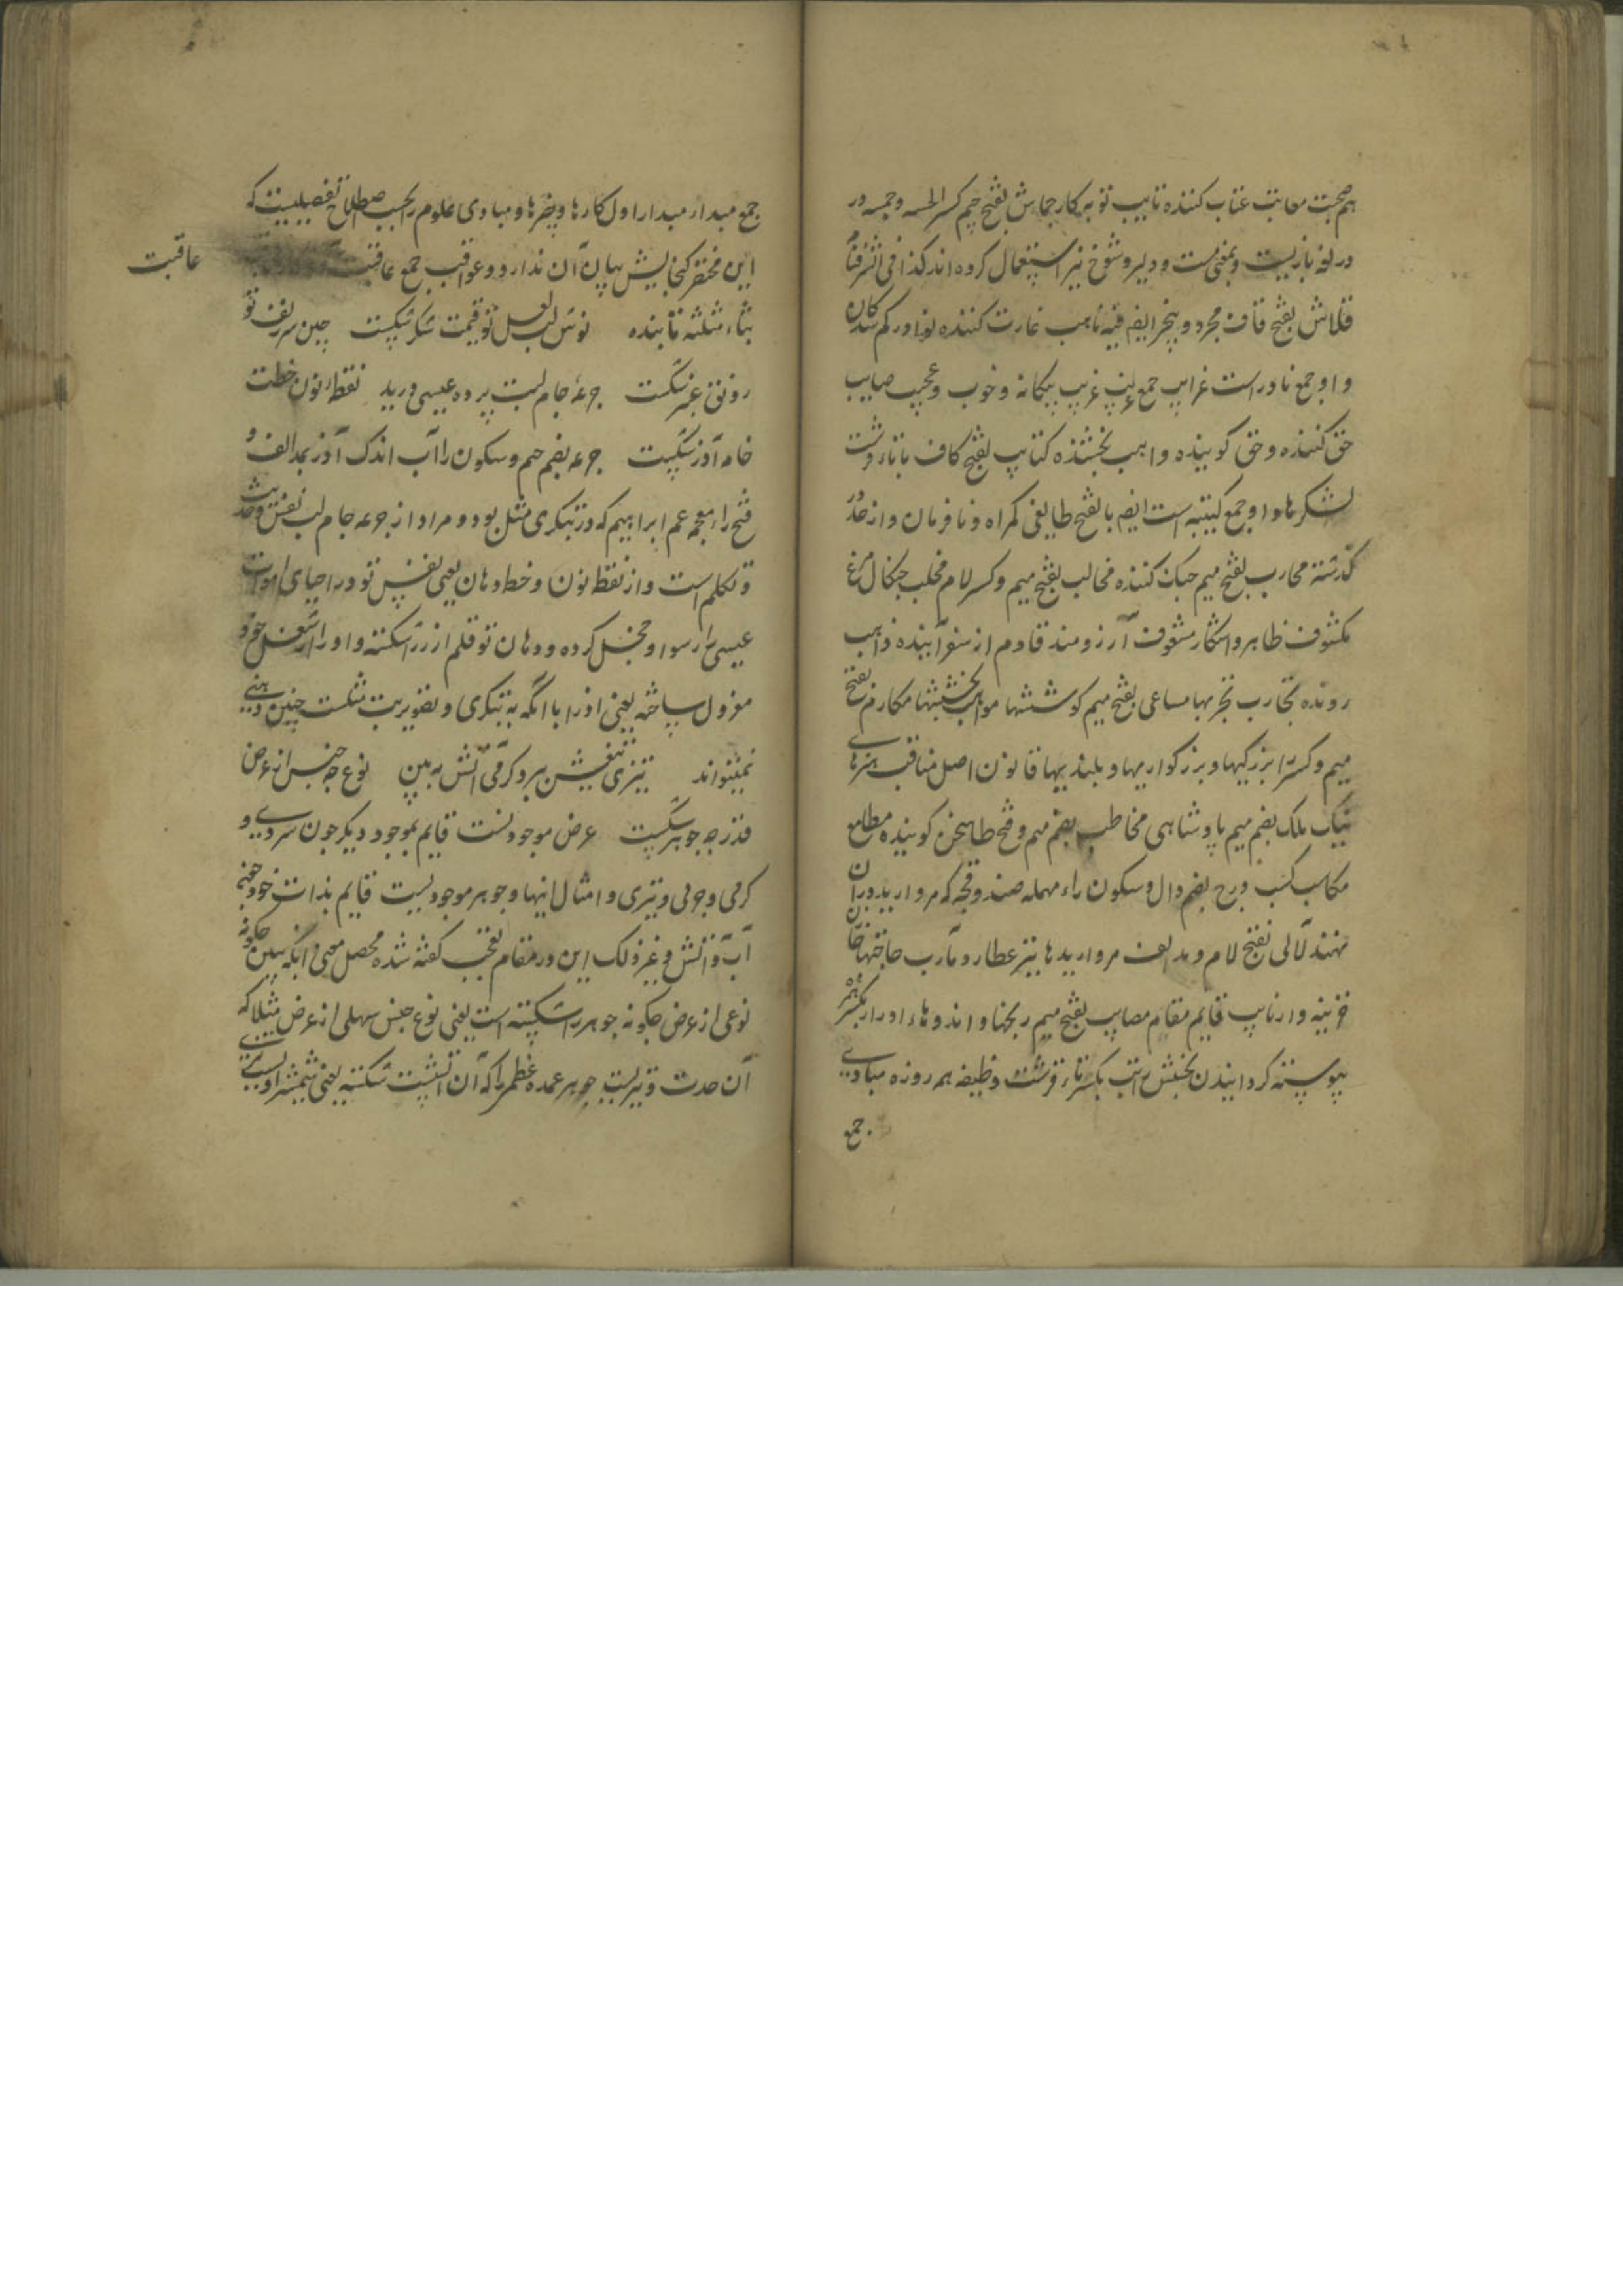 هم صحبت معاتب عتاب کننده تایب توبه کار جماش بفتح جیم کسر الخمسه و خمسه در
در لغه بازیست و بمعنی مست و دلیر و شوخ نیز استعمال کرده اند کذا فی الشرفنامه
قلاش بفتح قاف مجرد و بیخبر ایضم فیه ناهب غارت کننده نوادر کم شدکان
و او جمع نادر است غرایب جمع غریب غریب بیکانه و خوب و عجیب صایب
حق کننده و حق کوینده واهب بخشنده کتایب بفتح کاف با تاء قرشت
لشکرها و او جمع کتیبه است ایضم بالفتح طایفی کمراه و نافرمان و از حد در
کذشته محارب بضم میم جنک کننده مخالب بفتح میم و کسر لام مخلب چنکال مرغ
مکشوف ظاهر و اشکار مشعوف آرزومند قادم از سفر آینده ذاهب
رونده تجارب تجربها مساعی بفتح میم کوششها مواهب بخششها مکارم بفتح
میم و کسر را بزرکیها و بزرکواریها و بلندیها قانون اصل مناقب هنرهای
نیک ملک بضم میم پادشاهی مخاطب بضم میم و فتح طا سخن کوینده مطامع
مکاسب کسب درج بضم دال و سکون راء مهمله صندوقچه که مروارید در آن
نهند لآلی بفتح لام و مد الف مرواریدها نیز عطارد مآرب حاجتها خازن
خزینه دار نایب قایم مقام مصایب بفتح میم رنجها و اندوهها ادرار بکسر همزه
پیوسته کردانیدن بخشش راتب بکسر تاء قرشت وظیفه هر روزه مبادی
جمع
جمع مبدا و مبدا اول کارها و چیزها و مبادی علوم را بحسب اصطلاح تفصیلیست که
این مختصر کنجایش بیان آن ندارد و عواقب جمع عاقبت
عاقبت
بثاء مثلثه تابنده نوش لب لعل تو قیمت شکر شکست چین سر زلف تو
رونق عنبر شکست جرعه جام لبت پرده عیسی درید نقطه نون خطت
خامه آذر شکست جرعه بضم جیم و سکون را آب اندک آذر بمد الف و
فتح راء معجمه عم ابراهیم که در بتکری مثل بود و مراد از جرعه جام لب نفس و حدیث
و تکلم است و از نقطه نون و خط دهان یعنی نفس تو در احیای اموات
عیسی را رسوا و خجل کرده و دهان تو قلم از زر شکسته و او را از شغل خود
معزول ساخته یعنی اذر با انکه به بتکری و تصویر بت مثلست چنین دهنی
نمیتواند تیزی تیغش ببر و کرمی آتش به بین نوع چه جنس از عرض
قدر چه جوهر شکست عرض موجودیست قایم بموجود دیکر چون سردی و
کرمی و چربی و تیزی و امثال اینها و جوهر موجودیست قایم بذات خود چون
آب و آتش و غیر ذلک این در مقام تعجب کفته شده محصل معنی انکه ببین چکونه
نوعی از عرض چکونه جوهر را شکسته است یعنی نوع جنس سهلی از عرض مثلا که
آن حدت و تیزیست جوهر عمده عظیم را که آن آتشست شکسته یعنی شمشیر او تیزی